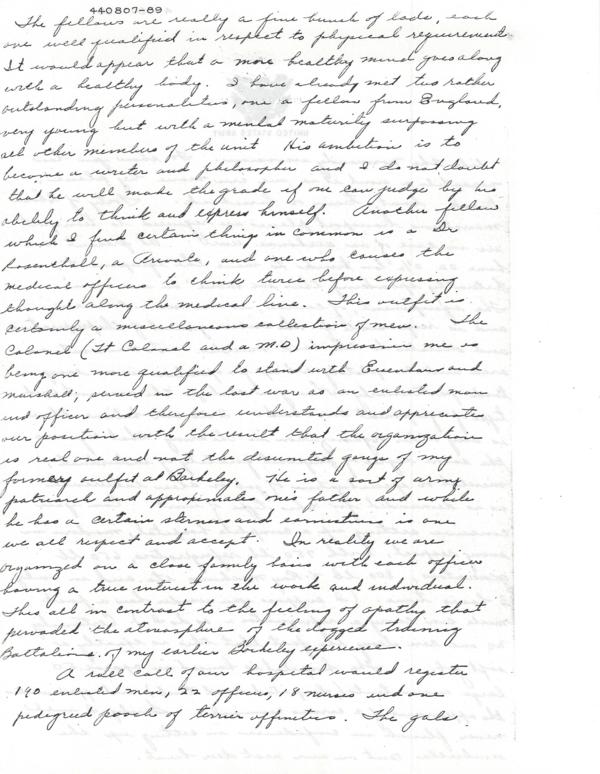 440807-89
The fellows are really a fine bunch of lads, each
one well qualified in respect to physical requirements
It would appear that a more healthy mind goes along
with a healthy body. I have already met two rather
outstanding personalities, one a fellow from England,
very young but with a mental maturity surpassing
all other members of the unit His ambition is to
become a writer and philosopher and I do not doubt
that he will make the grade if one can judge by his
ability to think and express himself. Another fellow
which I find certain things in common is a Dr
Rosenthall, a Private, and one who causes the
medical officers to think twice before expressing
thought along the medical line. This outfit is
certainly a miscellaneous collection of men. The
Colonel (Lt Colonel and a M.D) impression me as
being one more qualified to stand with Eisenhower and
Marshall; served in the last war as an enlisted man
and officer and therefore understands and appreciates
our position with the result that the organization
is real one and not the disunited gangs of my
former outfit at Barkeley. He is a sort of army
patriarch and approximates one's father and while
he has a certain sterness and earnestness is one
we all respect and accept. In reality we are
organized on a close family basis with each officer
having a true interest in the work and individual.
This all in contrast to the feeling of apathy that
pervaded the atmosphere of the dogged training
Battalions of my earlier Barkeley experience.
A roll call of our hospital would register
190 enlisted men, 22 officers, 18 nurses and one
pedigreed pooch of terrier affinities. The gals